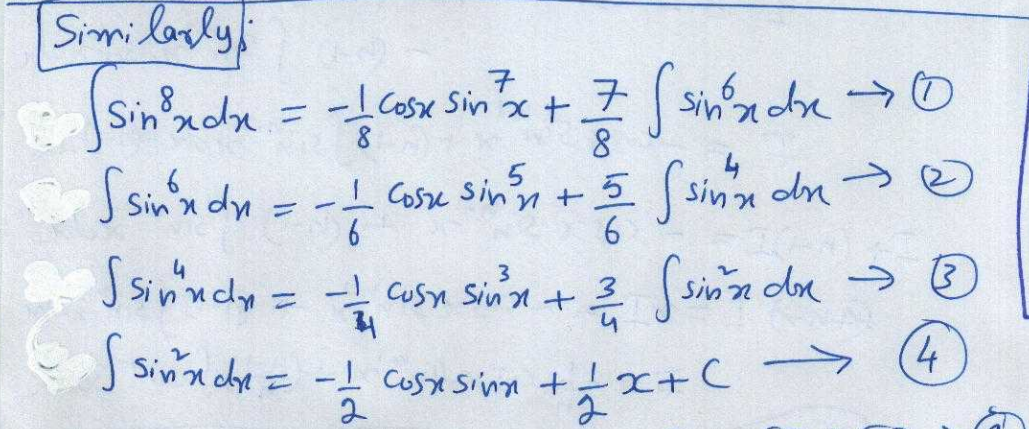 Similarly;
∫ Sin⁸x dx = -1/8 Cosx Sin⁷x + 7/8 ∫ sin⁶x dx → ①
∫ sin⁶x dx = -1/6 Cosx sin⁵x + 5/6 ∫ sin⁴x dx → ②
∫ Sin⁴x dx = -1/4 Cosx Sin³x + 3/4 ∫ sin²x dx → ③
∫ Sin²x dx = -1/2 Cosx sinx + 1/2 x + C → ④